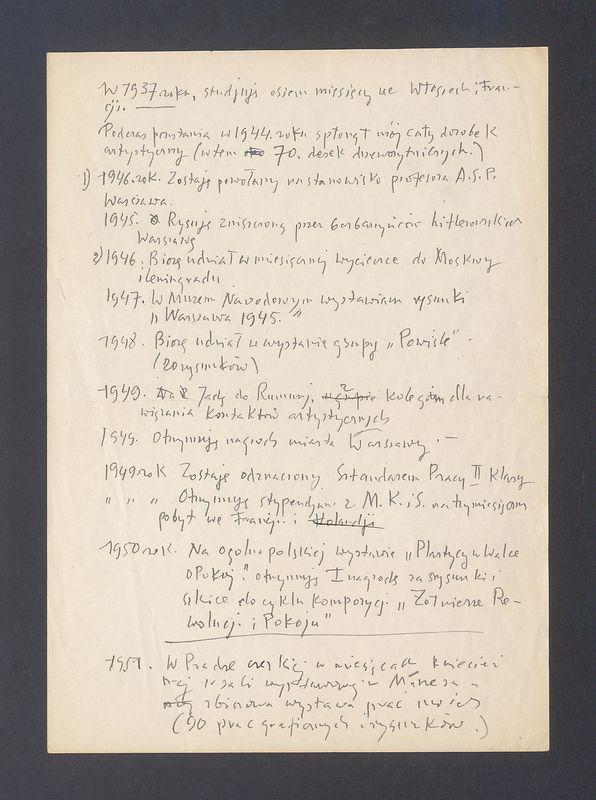 W 1937 roku, studjuję osiem miesięcy we Włoszech i Fran-
cji.
Podczas powstania w 1944. roku spłonął mój cały dorobek
artystyczny (w tem 70. desek drzeworytniczych.)
1) 1946. rok. Zostaję powołany na stanowisko profesora A.S.P.
Warszawa.
1945. Rysuję zniszczoną przez barbarzyńców hitlerowskich
Warszawę
2) 1946. Biorę udział w miesięcznej wycieczce do Moskwy
i Leningradu
1947. W Muzeum Narodowym wystawiam rysunki
„Warszawa 1945."
1948. Biorę udział w wystawie grupy „Powiśle".
(20 rysunków)
1949. Jadę do Rumunji, z kolegą dla na-
wiązania kontaktów artystycznych
1949. Otrzymuję nagrodę miasta Warszawy. —
1949. rok Zostaję odznaczony Sztandarem Pracy II klasy
" " " Otrzymuję stypendjum z M.K.iS. na trzymiesięczny
pobyt we Francji. i Holandji
1950 rok. Na ogólno polskiej wystawie „Plastycy w Walce
o Pokój." otrzymuję I nagrodę za rysunki i
szkice do cyklu kompozycji „Żołnierze Re-
wolucji i Pokoju"
1951. W Pradze czeskiej w miesiącach kwiecień
maj w sali wystawowej Manesa
zbiorowa wystawa prac
(90 prac graficznych i rysunków.)